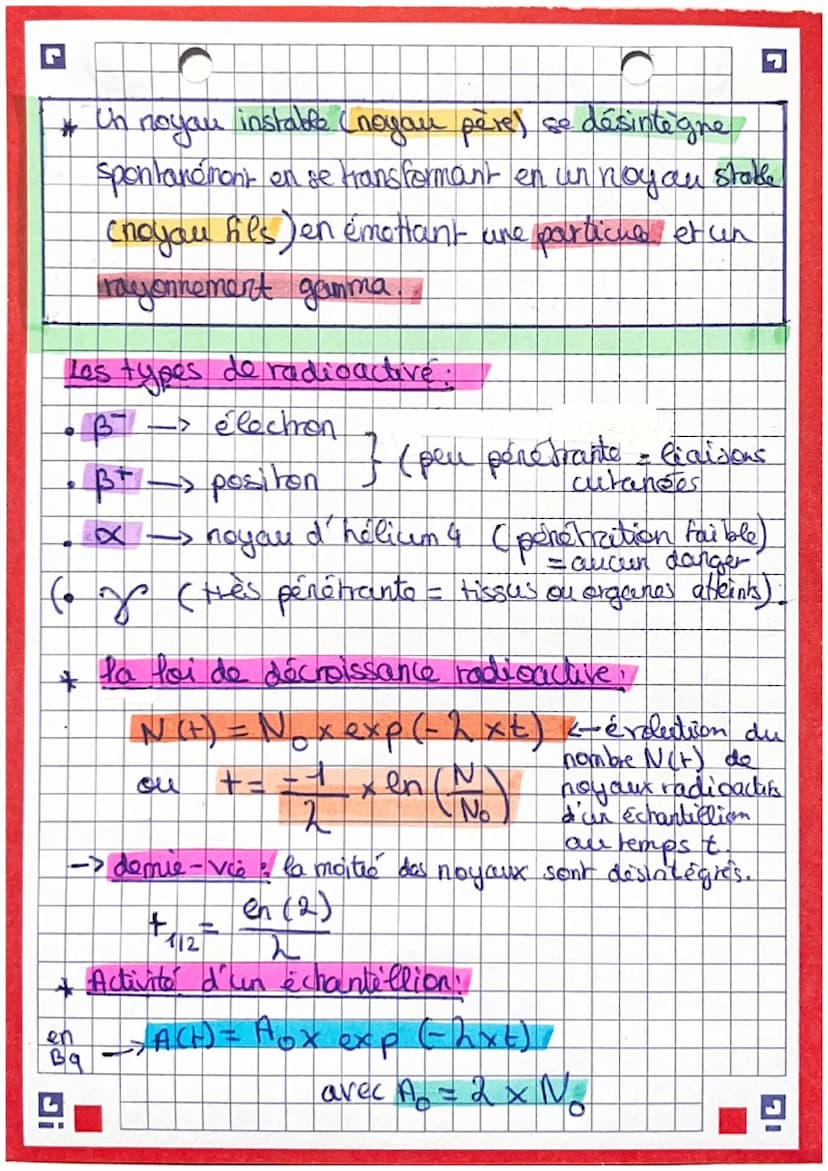 * Un noyau instable (noyau père) se désintègre
spontanémont en se transformant en un noyau stable
(noyau fils) en émettant une particule et un
rayonnement gamma.
Les types de radioactive :
• β⁻ -> électron
• β⁺ -> positon } (peu pénétrante = liaisons cutanées
• α -> noyau d'hélium 4 (pénétration faible)
= aucun danger
(• γ (très pénétrante = tissus ou organes atteints).
* La loi de décroissance radioactive :
N(t) = N₀ x exp(-λ xt) <- évolution du
nombre N(t) de
ou t = -1/λ x ln (N/N₀) noyaux radioactifs
d'un échantillion
au temps t.
-> demie-vie : la moitié des noyaux sont désintégrés.
t₁/₂ = ln(2)/λ
* Activité d'un échantillion :
en Bq -> A(t) = A₀ x exp (-λxt)
avec A₀ = λ x N₀